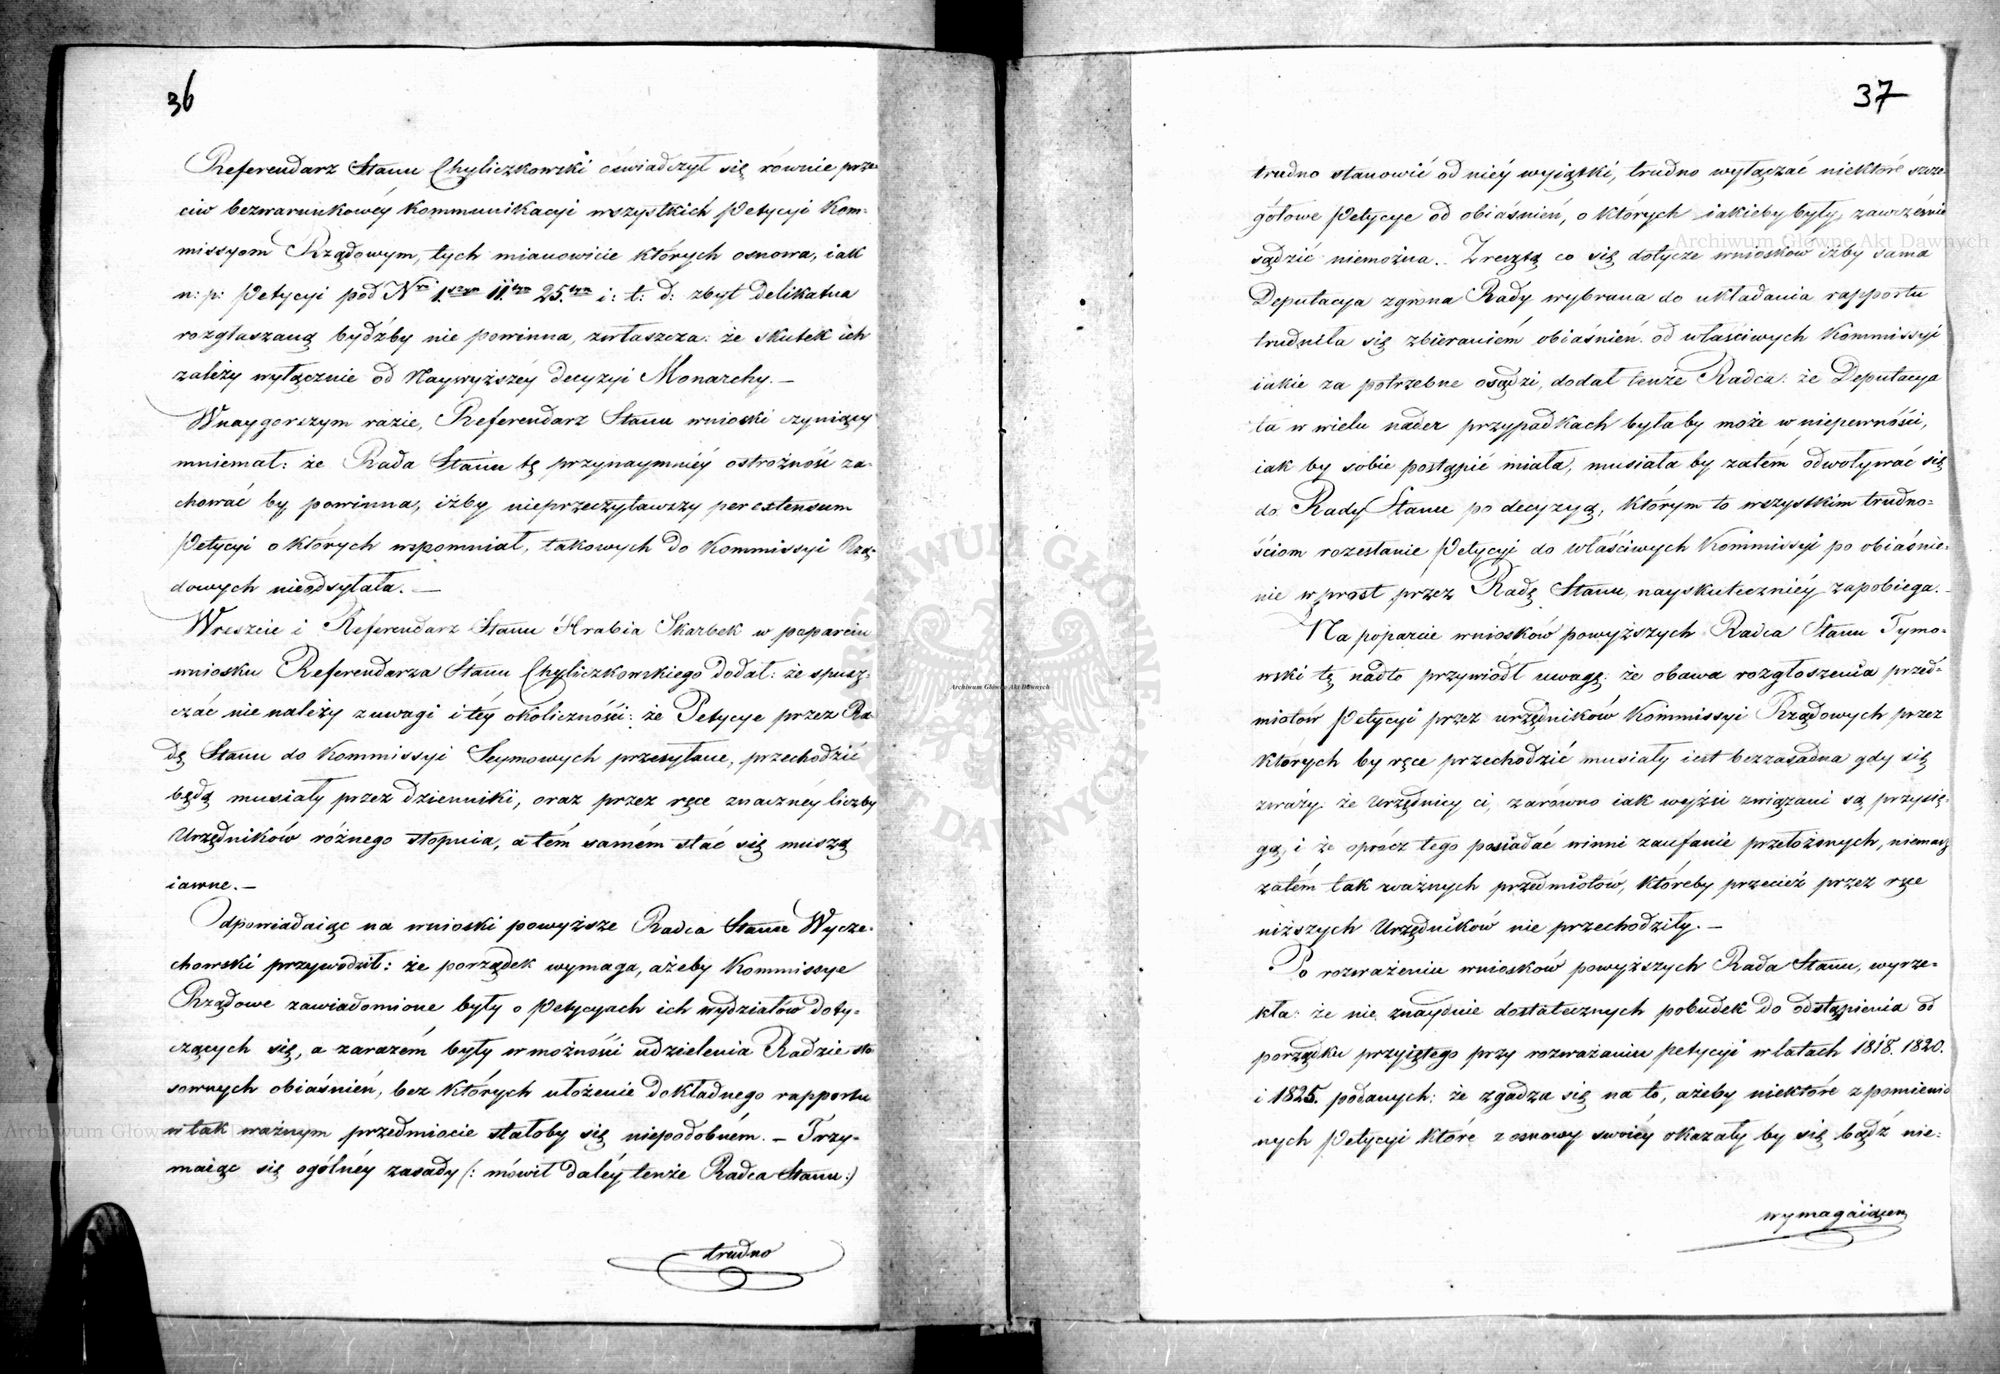 36
Referendarz Stanu Chyliczkowski oświadczył się równie prze-
ciw bezwarunkowéy kommunikacyi wszystkich Petycyi Kom-
missyom Rządowym, tych mianowicie których osnowa, iak
n: p: Petycyi pod Nrm 1szym 11tym 25tym i: t: d: zbyt delikatna
rozgłaszaną bydźby nie powinna, zwłaszcza: że skutek ich
zależy wyłącznie od Naywyższéy decyzyi Monarchy. —
Wnaygorszym razie, Referendarz Stanu wnioski czyniący
mniemał: że Rada Stanu tę przynaymniéy ostrożność za-
chować by powinna, iżby nieprzeczytawszy per extensum
Petycyi o których wspomniał, takowych do Kommissyi Rzą-
dowych nieodsyłała. —
Wreszcie i Referendarz Stanu Hrabia Skarbek w poparciu
wniosku Referendarza Stanu Chyliczkowskiego dodał: że spusz-
czać nie należy z uwagi i téy okoliczności: że Petycye przez Ra-
dę Stanu do Kommissyi Seymowych przesyłane, przechodzić
będą musiały przez dzienniki, oraz przez ręce znacznéy liczby
Urzędników różnego stopnia, a tém samém stać się muszą
iawne. —
Odpowiadaiąc na wnioski powyższe Radca Stanu Wycze-
chowski przywodził: że porządek wymaga, ażeby Kommissye
Rządowe zawiadomione były o Petycyach ich wydziałów doty-
czących się, a zarazém były w możności udzielenia Radzie sto-
sownych obiaśnień, bez których ułożenie dokładnego rapportu
w tak ważnym przedmiocie stałoby się niepodobném. — Trzy-
maiąc się ogólnéy zasady (: mówił daléy tenże Radca Stanu :)
trudno
37
trudno stanowić od niéy wyiątki, trudno wyłączać niektóré szcze-
gółowe Petycye od obiaśnień, o których iakieby były, zawcześnie
sądzić niemożna. Zresztą co się dotycze wniosków iżby sama
Deputacya zgrona Rady wybrana do układania rapportu
trudniła się zbieraniém obiaśnień od właściwych Kommissyi
iakie za potrzebne osądzi, dodał tenże Radca: że Deputacya
ta w wielu nader przypadkach byłaby może w niepewności,
iak by sobie postąpić miała, musiała by zatém odwoływać się
do Rady Stanu po decyzyą, którym to wszystkim trudno-
ściom rozesłanie Petycyi do właściwych Kommissyi po obiaśnie-
nie w prost przez Radę Stanu, nayskuteczniéy zapobiega. —
Na poparcie wniosków powyższych Radca Stanu Tymo-
wski tę nadto przywiódł uwagę: że obawa rozgłoszenia przed-
miotów Petycyi przez urzędników Kommissyi Rządowych przez
których by ręce przechodzić musiały iest bezzasadna gdy się
zważy: że Urzędnicy ci, zarówno iak wyżsi związani są przysię-
gą, i że oprócz tego posiadać winni zaufanie przełożonych, niemasz
zatém tak ważnych przedmiotów, któreby przecież przez ręce
niższych Urzędników nie przechodziły. —
Po rozważeniu wniosków powyższych Rada Stanu, wyrze-
kła: że nie znayduie dostatecznych pobudek do odstąpienia od
porządku przyiętego przy rozważaniu petycyi w latach 1818. 1820.
i 1825. podanych: że zgadza się na to, ażeby niektóré z pomienio
nych Petycyi któré z osnowy swoiéy okazały by się bądź nie-
wymagaiącem